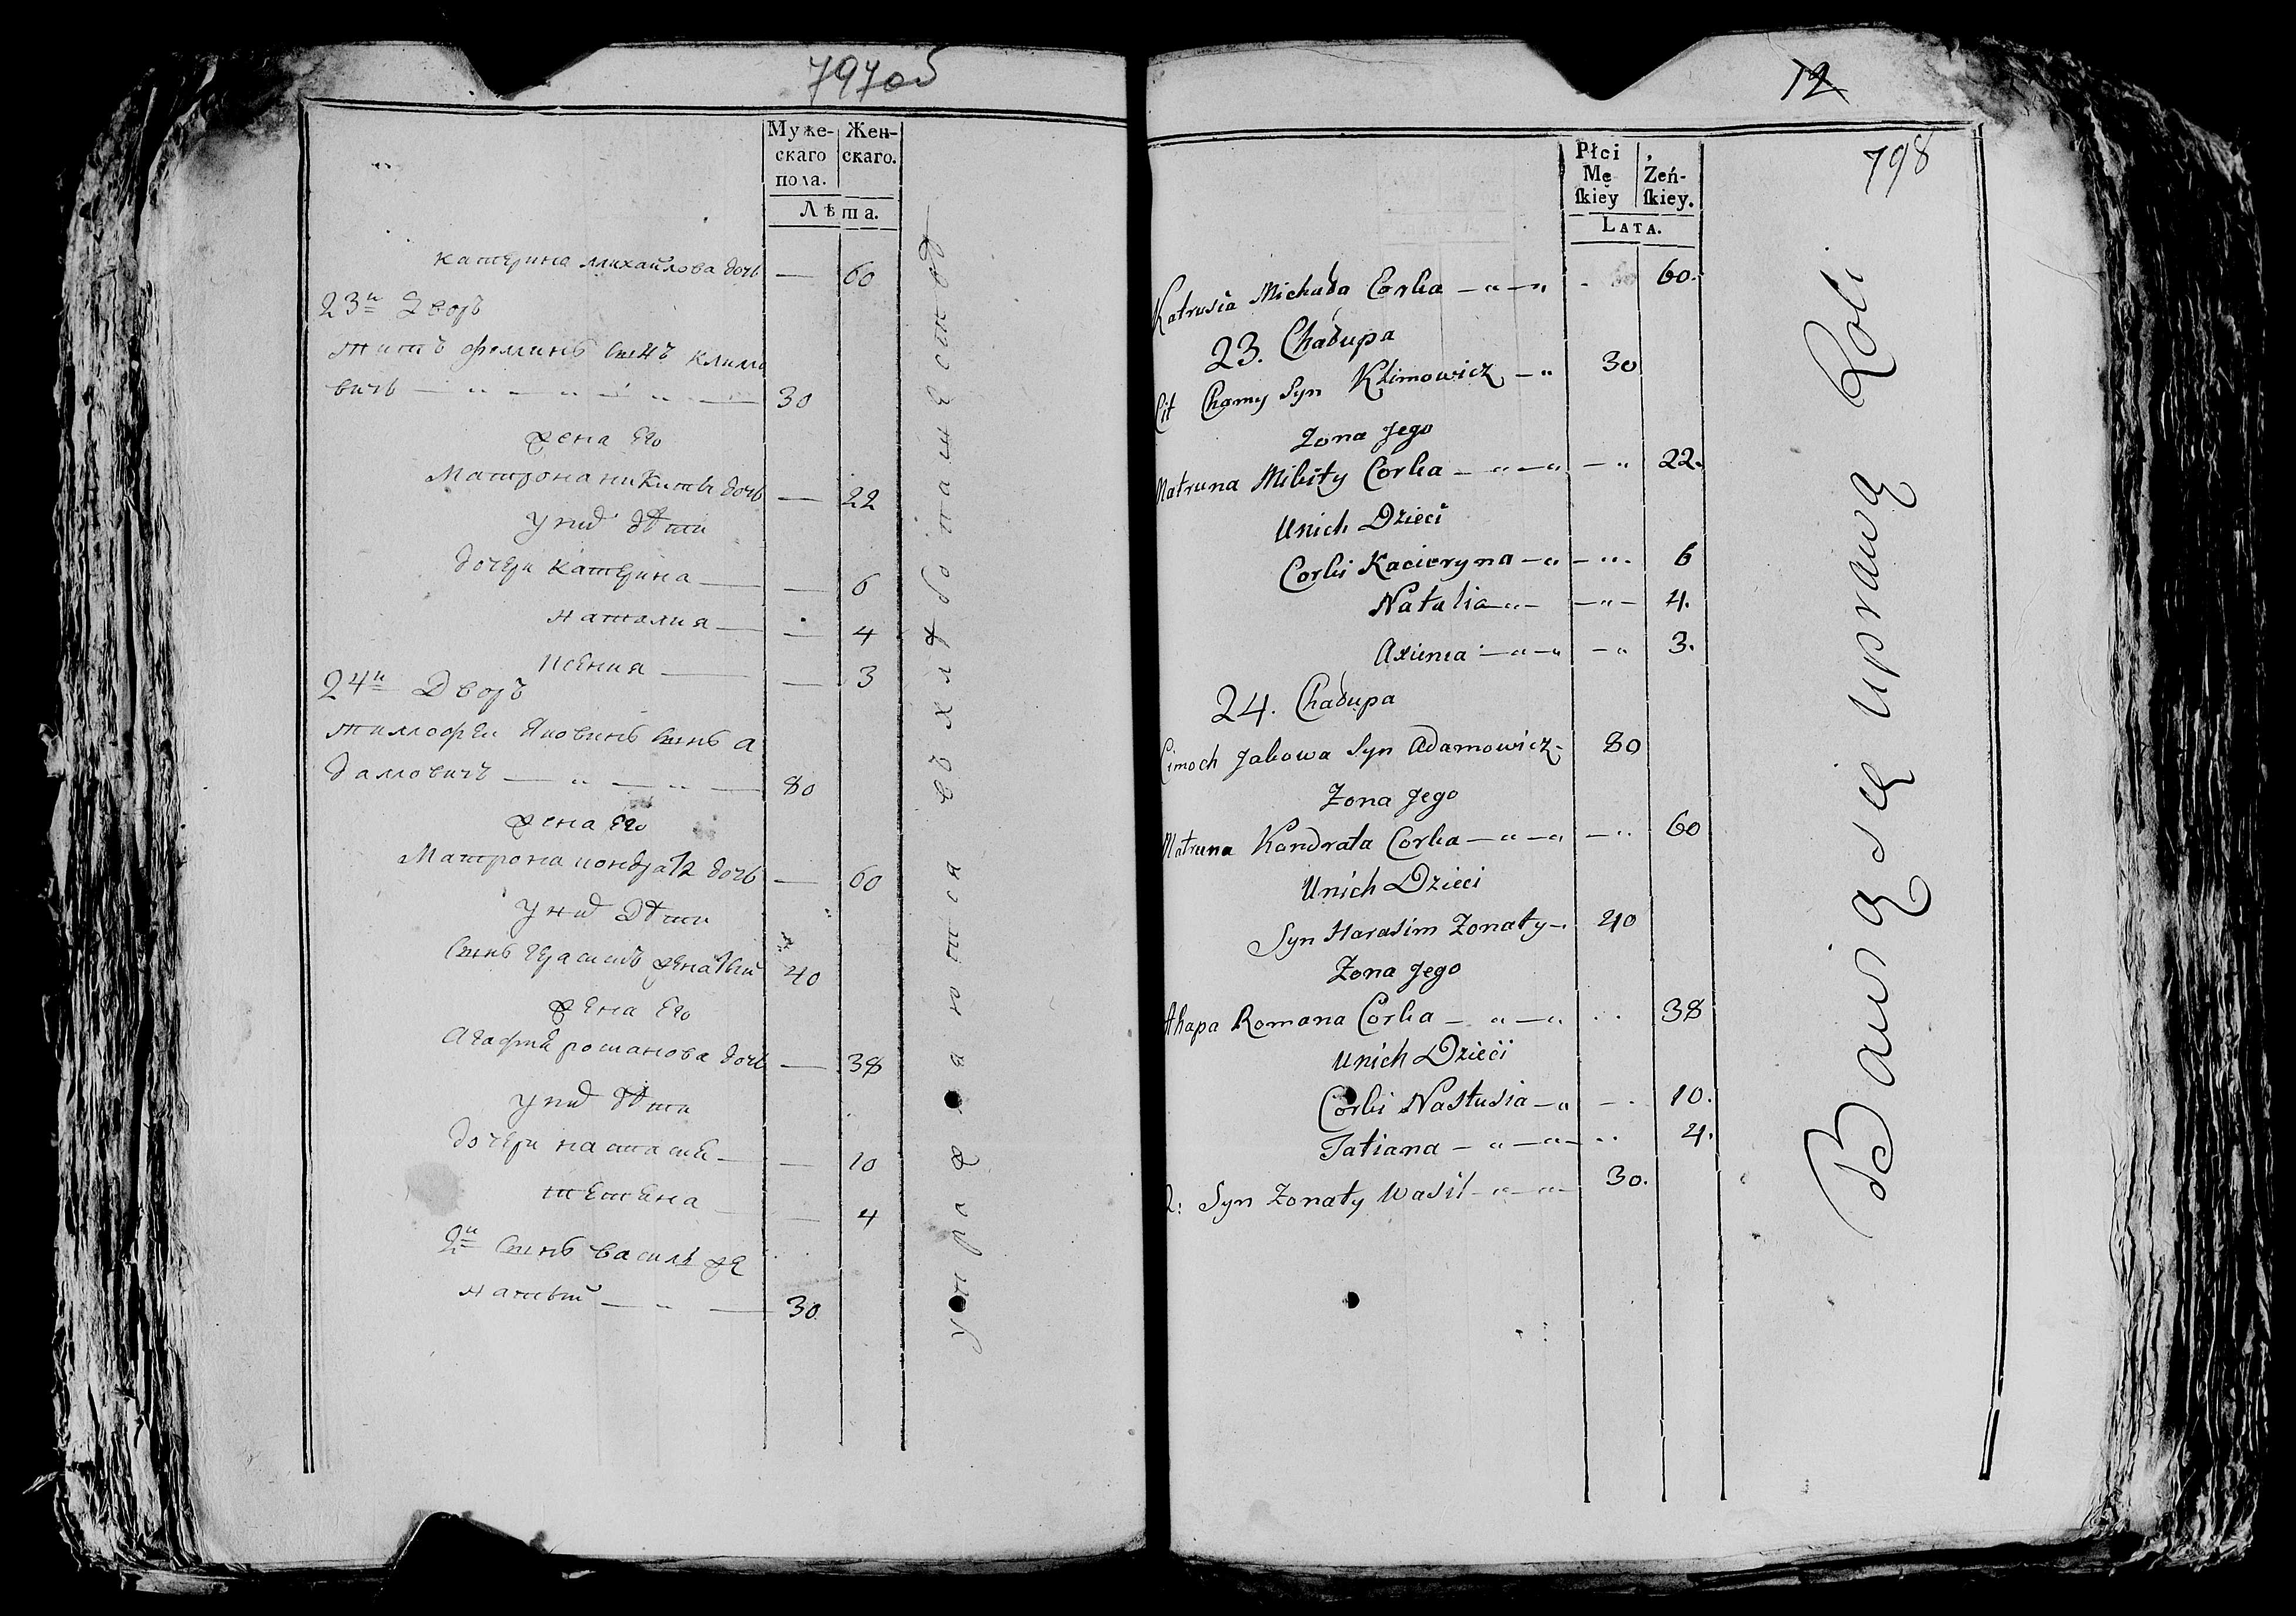 797об
Муже-
скаго
пола.
Жен-
скаго.
Лѣта.
Катерина михайлова дочь — 60
23й Дворъ
титъ фоминъ сынъ климо
вичь — 30
жена его
Матрона никиты дочь — 22
у них дѣти
дочери катерина — 6
наталия — 4
ксения — 3
24й Дворъ
тимофеи Яковинъ сынъ а
дамовичъ — 80
жена его
Матрона кондрата дочь — 60
у них Дѣти
сынъ герасимъ женатый 40
жена его
Агафия романова дочь — 38
у них дѣти
дочери настасия — 10
тетиена — 4
2й сынъ василь же
натый — 30
упражняются въ хлѣбопашествѣ
12
798
Płci
Mę
skiey
Żeń-
skiey.
LATA.
Katrusia Michała Corka — 60.
23. Chałupa
Cit Chomy Syn Klimowicz — 30
Zona Jego
Matruna Mikity Corka — 22.
Unich Dzieci
Corki Kacieryna — 6
Natalia — 4.
Axienia — 3.
24. Chałupa
Cimoch Jakowa Syn Adamowicz — 80
Zona Jego
Matruna Kondrata Corka — 60
Unich Dzieci
Syn Harasim Zonaty — 40
Zona Jego
Ahapa Romana Corka — 38
Unich Dzieci
Corki Nastusia — 10.
Tatiana — 4.
2: Syn Zonaty Wasil — 30.
Bawią się uprawą Roli